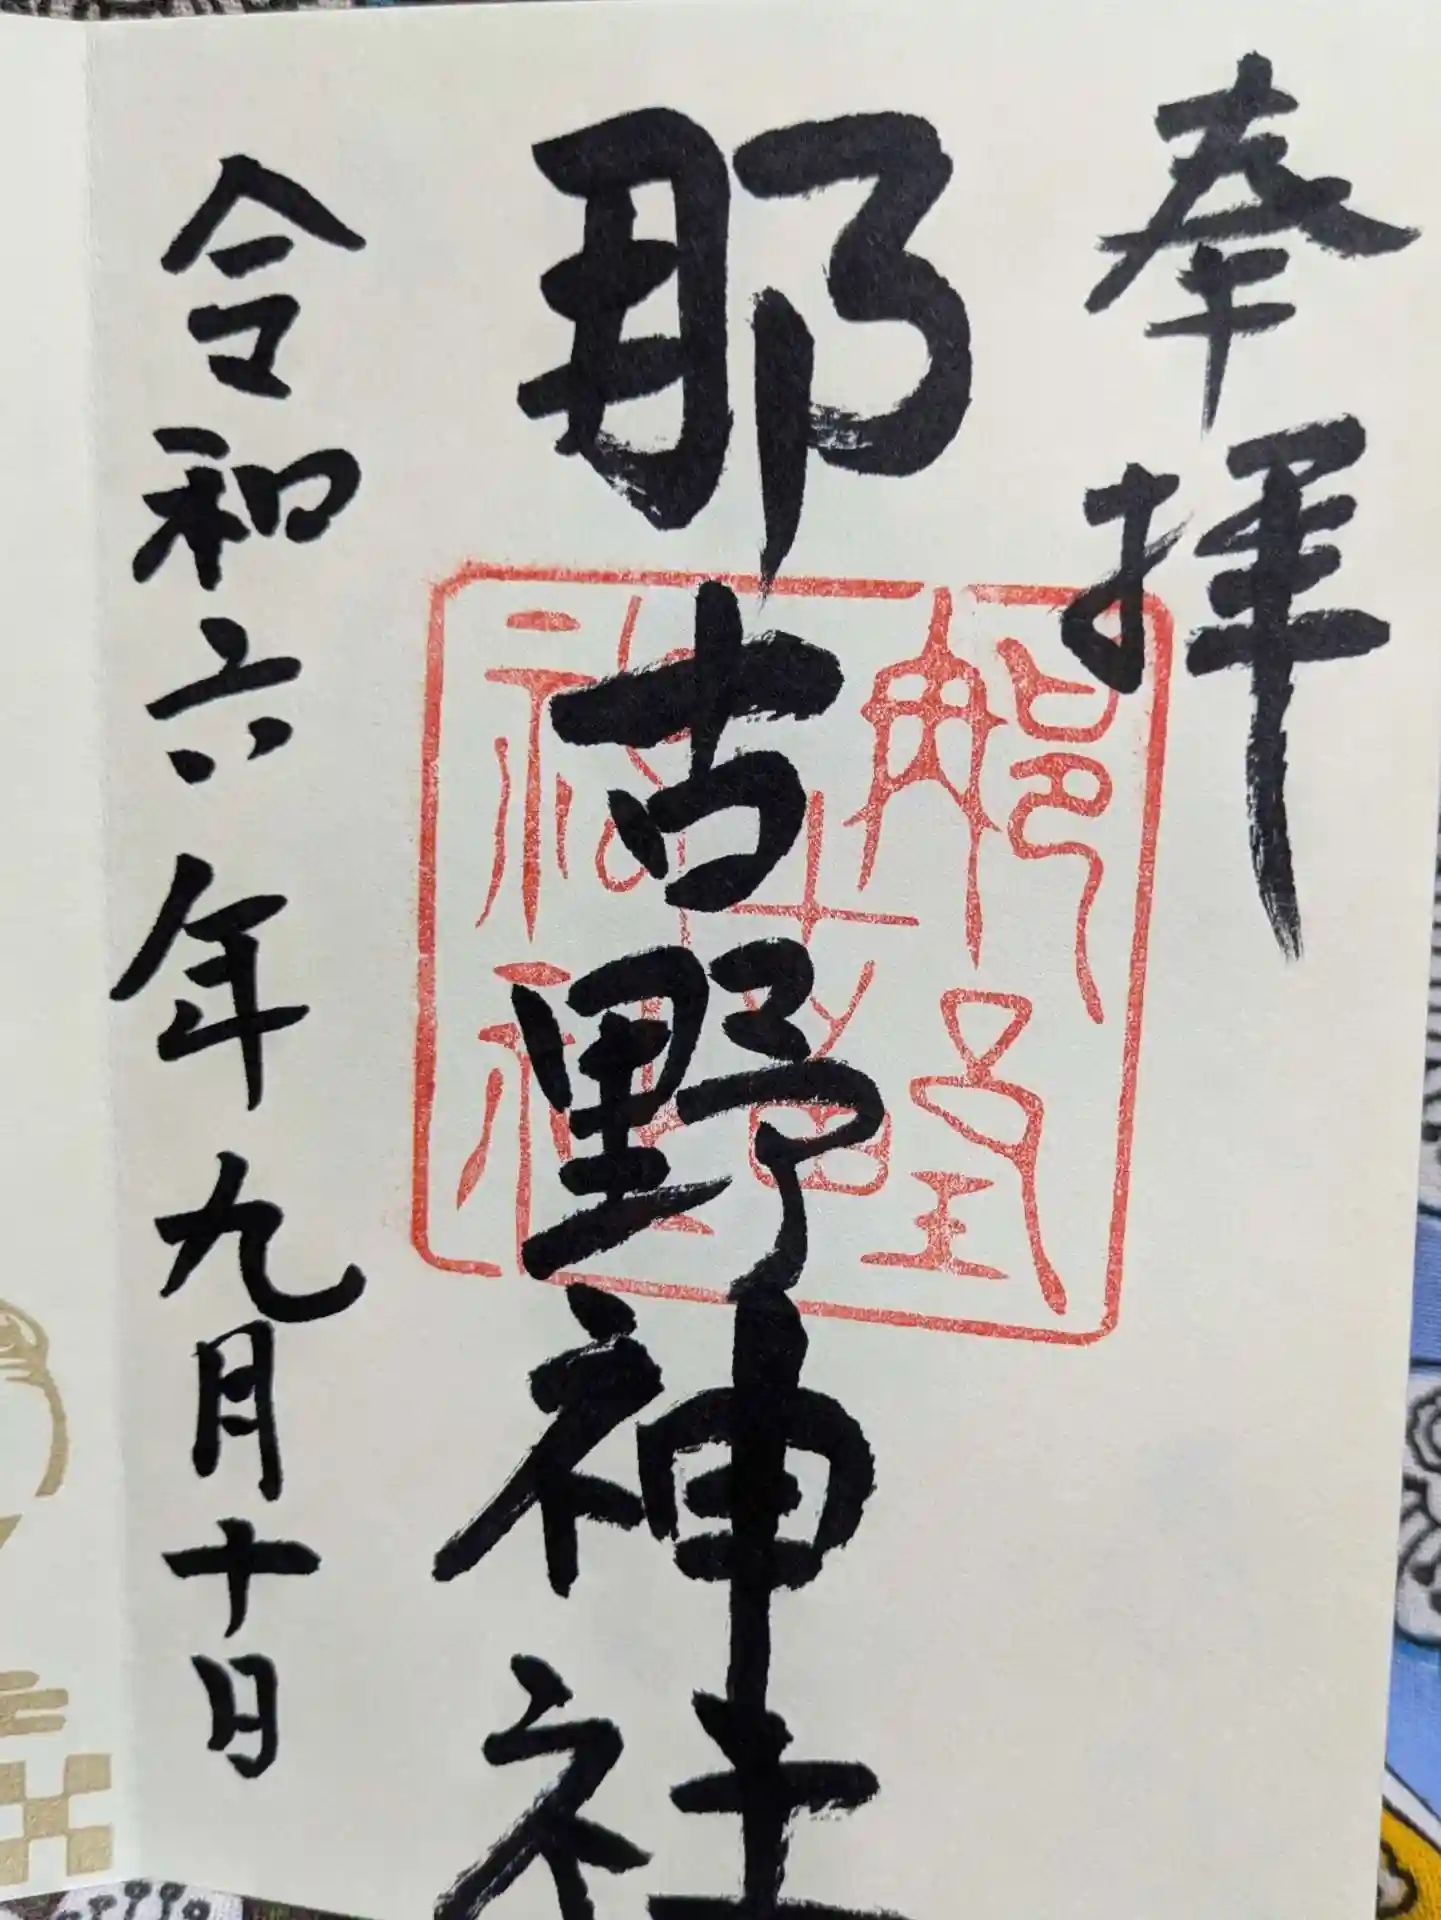 奉拝
那古野神社
令和六年九月十日
那古野神社